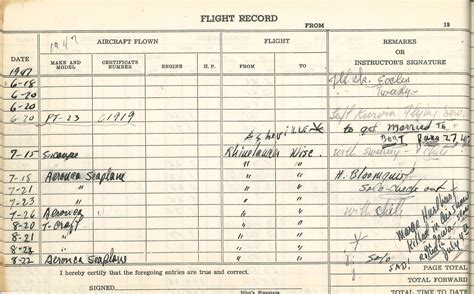 FLIGHT RECORD
FROM 19
1947 AIRCRAFT FLOWN FLIGHT REMARKS
OR
INSTRUCTOR'S SIGNATURE
DATE MAKE AND MODEL CERTIFICATE NUMBER ENGINE H.P. FROM TO
1947 Eccles
6-18 Tweedy
6-20
6-20 Left Kurova Flying Serv.
6-20 PT-23 L1919 to get married to
Asheville Bert June 27 47
7-15 Rhinelander Wisc. with Sweeney
7-18 Aeronca Seaplane " " H. Bloomquist
7-21 " " " Solo-check out
7-23 " " "
7-26 Aeronca " " with
8-20 T-Craft " "
8-21 " " " " Solo
8-22 Aeronca Seaplane " " SAD!
Marge Hurlburt
killed in air show
in Iowa
July
I hereby certify that the foregoing entries are true and correct.
SIGNED ATTESTED BY
Pilot's Signature